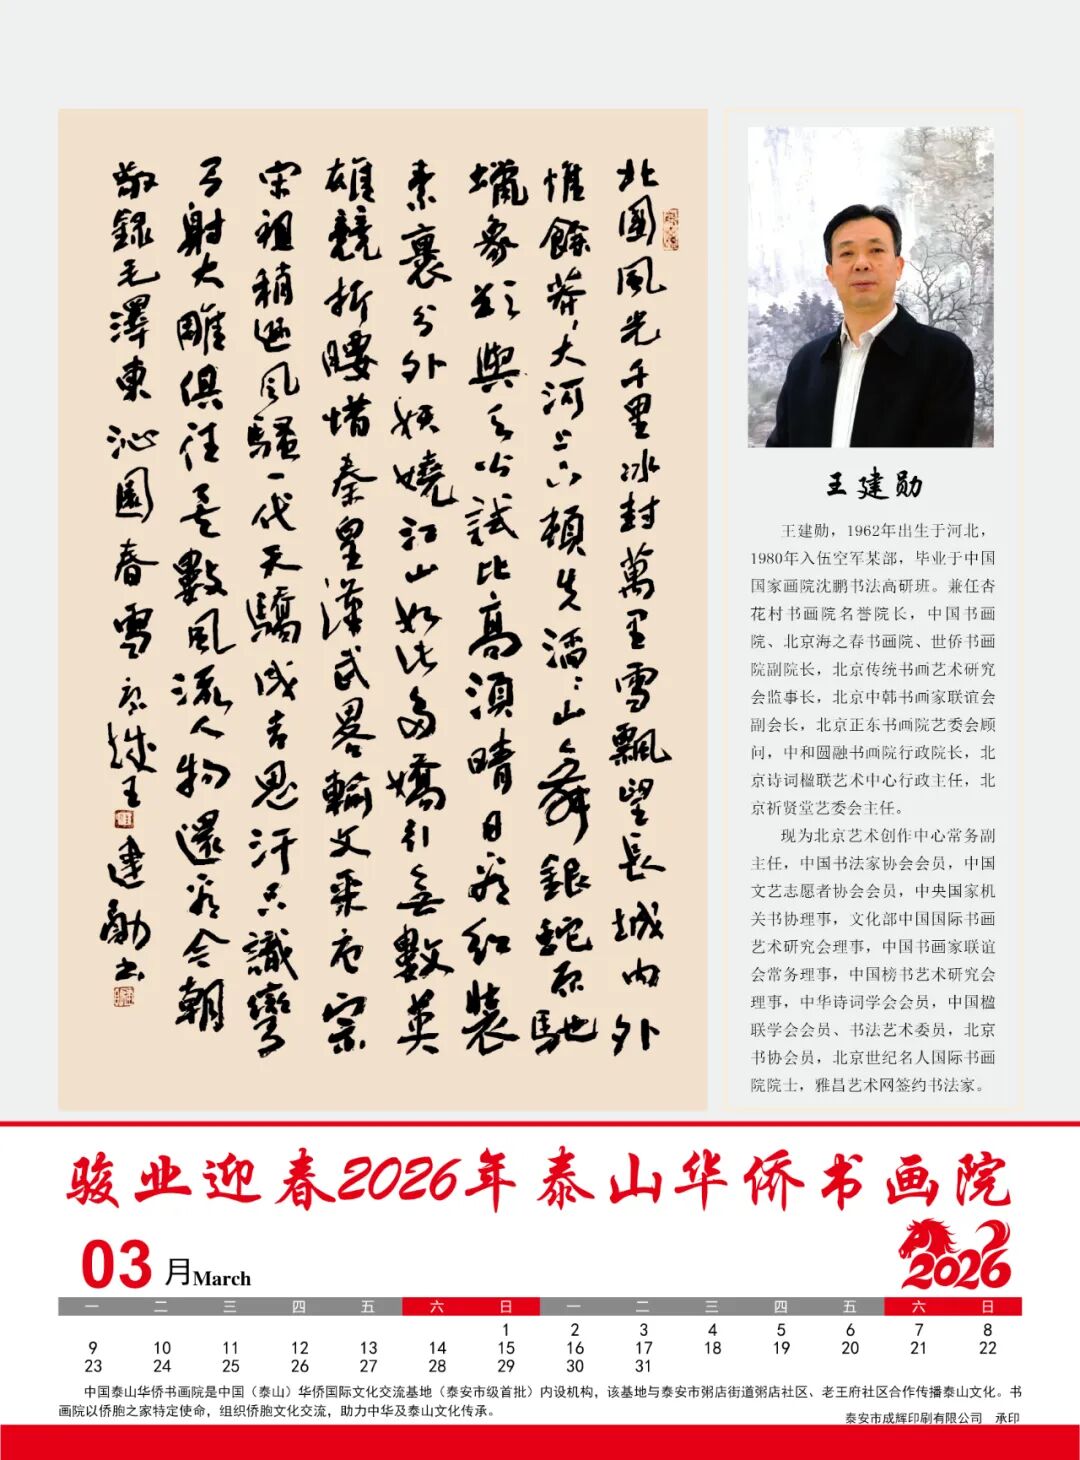 北國風光千里冰封萬里雪飄望長城内外
惟餘莽〻大河上下頓失滔〻山舞銀蛇原馳
蠟象欲與天公試比高須晴日看紅裝
素裹分外妖嬈江山如此多嬌引無數英
雄競折腰惜秦皇漢武畧輸文采唐宗
宋祖稍遜風騷一代天驕成吉思汗只識彎
弓射大雕俱往矣數風流人物還看今朝
敬錄毛澤東沁園春雪京城王建勛书
王建勋
王建勋，1962年出生于河北，
1980年入伍空军某部，毕业于中国
国家画院沈鹏书法高研班。兼任杏
花村书画院名誉院长，中国书画
院、北京海之春书画院、世侨书画
院副院长，北京传统书画艺术研究
会监事长，北京中韩书画家联谊会
副会长，北京正东书画院艺委会顾
问，中和圆融书画院行政院长，北
京诗词楹联艺术中心行政主任，北
京祈贤堂艺委会主任。
现为北京艺术创作中心常务副
主任，中国书法家协会会员，中国
文艺志愿者协会会员，中央国家机
关书协理事，文化部中国国际书画
艺术研究会理事，中国书画家联谊
会常务理事，中国榜书艺术研究会
理事，中华诗词学会会员，中国楹
联学会会员、书法艺术委员，北京
书协会员，北京世纪名人国际书画
院院士，雅昌艺术网签约书法家。
骏业迎春2026年泰山华侨书画院
03月March
2026
一 二 三 四 五 六 日 一 二 三 四 五 六 日
1 2 3 4 5 6 7 8
9 10 11 12 13 14 15 16 17 18 19 20 21 22
23 24 25 26 27 28 29 30 31
中国泰山华侨书画院是中国（泰山）华侨国际文化交流基地（泰安市级首批）内设机构，该基地与泰安市粥店街道粥店社区、老王府社区合作传播泰山文化。书
画院以侨胞之家特定使命，组织侨胞文化交流，助力中华及泰山文化传承。
泰安市成辉印刷有限公司 承印